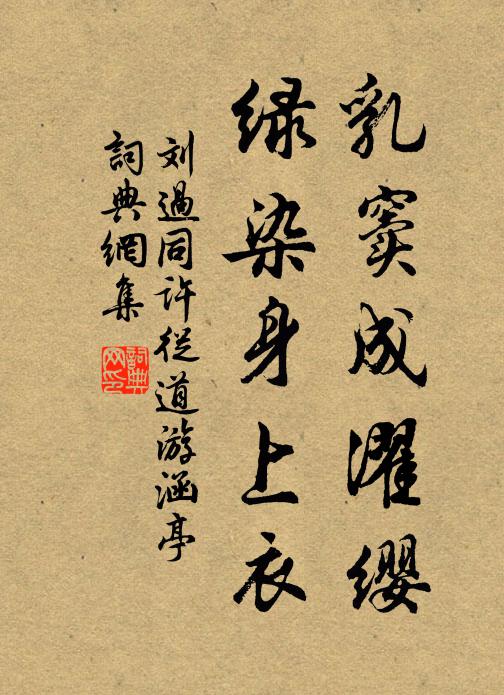 乳窦成濯缨
绿染身上衣
刘過同许從道游涵亭
詞典網集
詞典网印